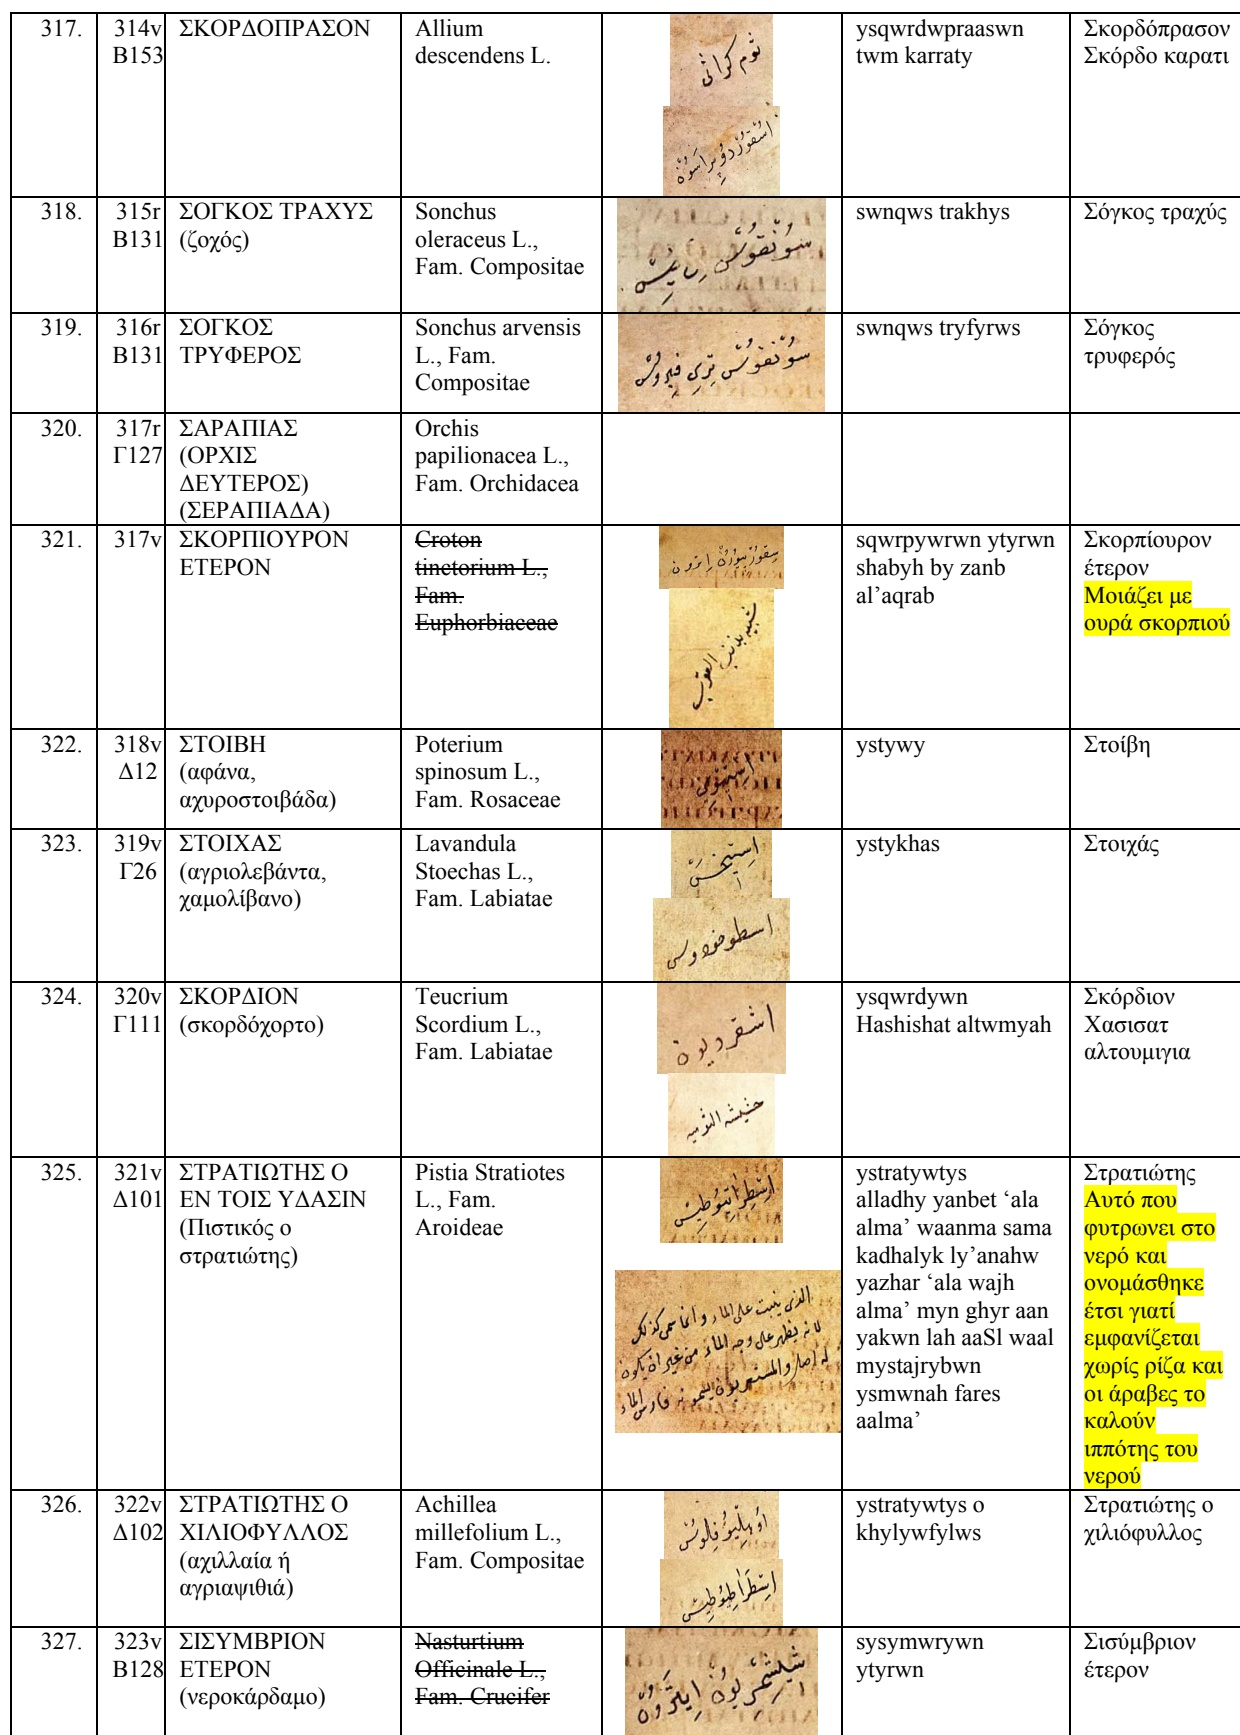 317.
314v
Β153
ΣΚΟΡΔΟΠΡΑΣΟΝ
Allium
descendens L.
ثوم كراثي
اسقوردوپراسون
ysqwrdwpraaswn
twm karraty
Σκορδόπρασον
Σκόρδο καρατι
318.
315r
Β131
ΣΟΓΚΟΣ ΤΡΑΧΥΣ
(ζοχός)
Sonchus
oleraceus L.,
Fam. Compositae
سونقوس
swnqws trakhys
Σόγκος τραχύς
319.
316r
Β131
ΣΟΓΚΟΣ
ΤΡΥΦΕΡΟΣ
Sonchus arvensis
L., Fam.
Compositae
سونقوس تري فيروس
swnqws tryfyrws
Σόγκος
τρυφερός
320.
317r
Γ127
ΣΑΡΑΠΙΑΣ
(ΟΡΧΙΣ
ΔΕΥΤΕΡΟΣ)
(ΣΕΡΑΠΙΑΔΑ)
Orchis
papilionacea L.,
Fam. Orchidacea
321.
317v
ΣΚΟΡΠΙΟΥΡΟΝ
ΕΤΕΡΟΝ
Croton
tinctorium L.,
Fam.
Euphorbiaceae
سقورپيورون اترون
شبيه بذنب العقرب
sqwrpywrwn ytyrwn
shabyh by zanb
al’aqrab
Σκορπίουρον
έτερον
Μοιάζει με
ουρά σκορπιού
322.
318v
Δ12
ΣΤΟΙΒΗ
(αφάνα,
αχυροστοιβάδα)
Poterium
spinosum L.,
Fam. Rosaceae
ystywy
Στοίβη
323.
319v
Γ26
ΣΤΟΙΧΑΣ
(αγριολεβάντα,
χαμολίβανο)
Lavandula
Stoechas L.,
Fam. Labiatae
اسطوخودوس
ystykhas
Στοιχάς
324.
320v
Γ111
ΣΚΟΡΔΙΟΝ
(σκορδόχορτο)
Teucrium
Scordium L.,
Fam. Labiatae
اشقرديون
حشيشة الثومية
ysqwrdywn
Hashishat altwmyah
Σκόρδιον
Χασισατ
αλτουμιγια
325.
321v
Δ101
ΣΤΡΑΤΙΩΤΗΣ Ο
ΕΝ ΤΟΙΣ ΥΔΑΣΙΝ
(Πιστικός ο
στρατιώτης)
Pistia Stratiotes
L., Fam.
Aroideae
اسطراتيوطيس
الذي ينبت على الماء وانما سمي كذلك
لانه يظهر على وجه الماء من غير ان يكون
له اصل والمستعربون يسمونه فارس الماء
ystratywtys
alladhy yanbet ‘ala
alma’ waanma sama
kadhalyk ly’anahw
yazhar ‘ala wajh
alma’ myn ghyr aan
yakwn lah aaSl waal
mystajrybwn
ysmwnah fares
aalma’
Στρατιώτης
Αυτό που
φυτρωνει στο
νερό και
ονομάσθηκε
έτσι γιατί
εμφανίζεται
χωρίς ρίζα και
οι άραβες το
καλούν
ιππότης του
νερού
326.
322v
Δ102
ΣΤΡΑΤΙΩΤΗΣ Ο
ΧΙΛΙΟΦΥΛΛΟΣ
(αχιλλαία ή
αγριαψιθιά)
Achillea
millefolium L.,
Fam. Compositae
اسطراطيوطيس
ystratywtys o
khylywfylws
Στρατιώτης ο
χιλιόφυλλος
327.
323v
Β128
ΣΙΣΥΜΒΡΙΟΝ
ΕΤΕΡΟΝ
(νεροκάρδαμο)
Nasturtium
Officinale L.,
Fam. Crucifer
sysymwrywn
ytyrwn
Σισύμβριον
έτερον